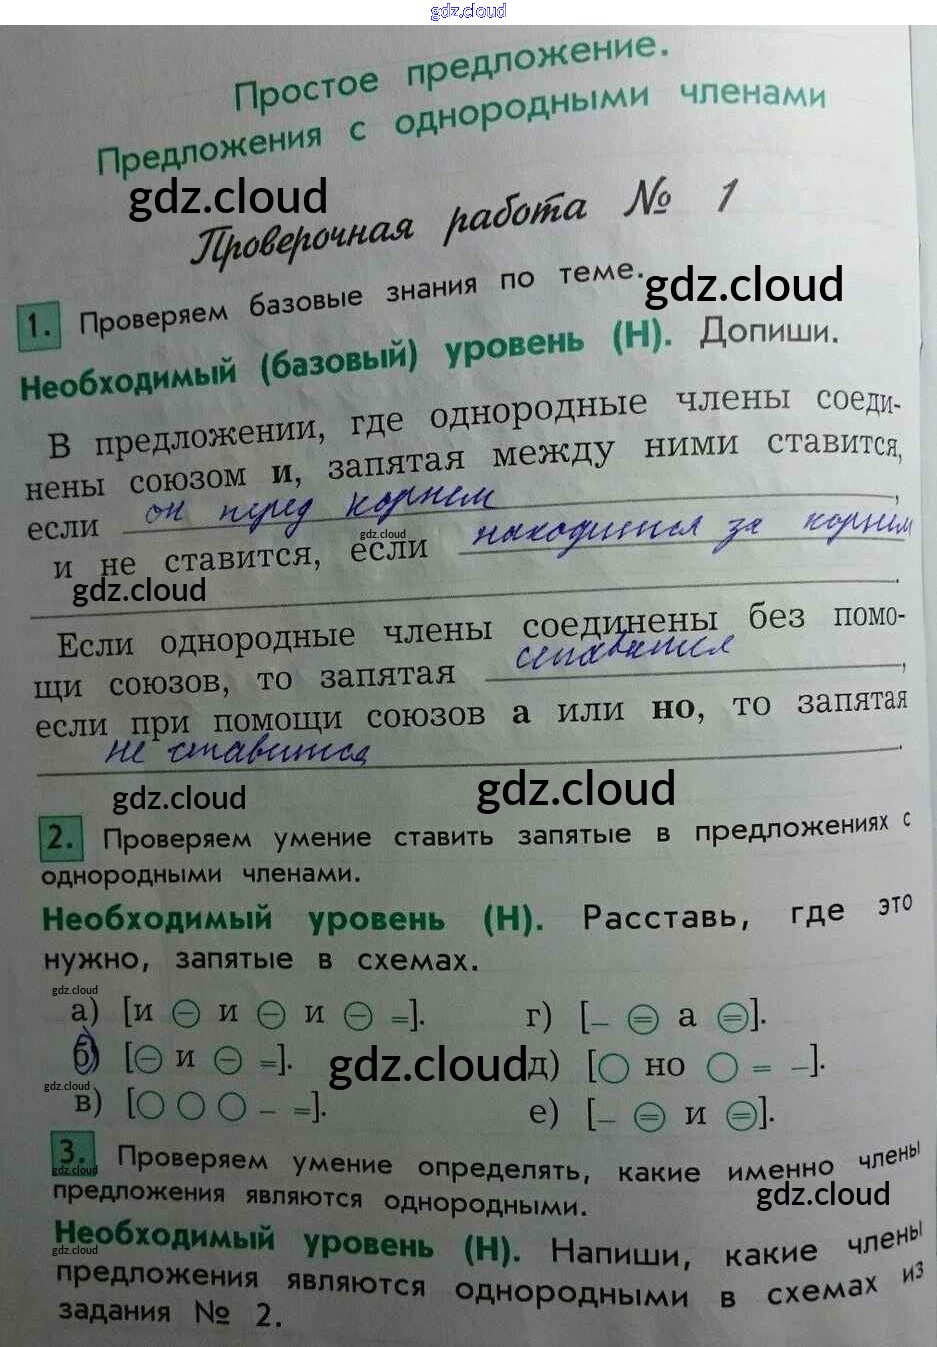 gdz.cloud
Простое предложение.
Предложения с однородными членами
gdz.cloud
Проверочная работа № 1
gdz.cloud
1. Проверяем базовые знания по теме.
Необходимый (базовый) уровень (Н). Допиши.
В предложении, где однородные члены соеди-
нены союзом и, запятая между ними ставится,
если он перед корнем,
gdz.cloud
и не ставится, если находится за корнем
gdz.cloud
.
Если однородные члены соединены без помо-
щи союзов, то запятая ставится,
если при помощи союзов а или но, то запятая
не ставится.
gdz.cloud
gdz.cloud
2. Проверяем умение ставить запятые в предложениях с
однородными членами.
Необходимый уровень (Н). Расставь, где это
нужно, запятые в схемах.
gdz.cloud
а) [и ⊝ и ⊝ и ⊝ =]. г) [– ⊜ а ⊜].
б) [⊝ и ⊝ =]. д) [○ но ○ = –].
gdz.cloud
gdz.cloud
в) [○ ○ ○ – =]. е) [– ⊜ и ⊜].
3. Проверяем умение определять, какие именно члены
gdz.cloud
предложения являются однородными.
gdz.cloud
Необходимый уровень (Н). Напиши, какие члены
gdz.cloud
предложения являются однородными в схемах из
задания № 2.